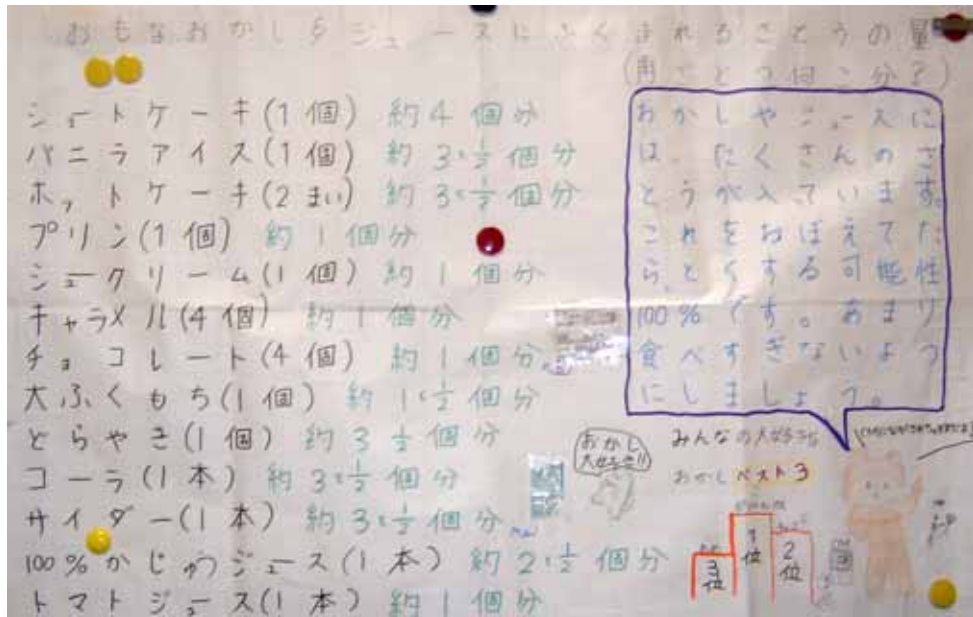 おもなおかしやジュースにふくまれるさとうの量
(角ざとう何こ分?)
ショートケーキ(1個) 約4個分
バニラアイス(1個) 約3と1/2個分
ホットケーキ(2まい) 約3と1/2個分
プリン(1個) 約1個分
シュークリーム(1個) 約1個分
キャラメル(4個) 約1個分
チョコレート(4個) 約1個分
大ふくもち(1個) 約1と1/2個分
どらやき(1個) 約3 1/2個分
コーラ(1本) 約3と1/2個分
サイダー(1本) 約3と1/2個分
100%かじゅうジュース(1本) 約2と1/2個分
トマトジュース(1本) 約1個分
おかしやジュースに
は、たくさんのさ
とうが入っています。
これをおぼえてた
ら、とくする可能性
100%です。あまり
食べすぎないよう
にしましょう。
おかし
大好き!!
みんなの大好きな
おかしベスト3
1位
2位
3位